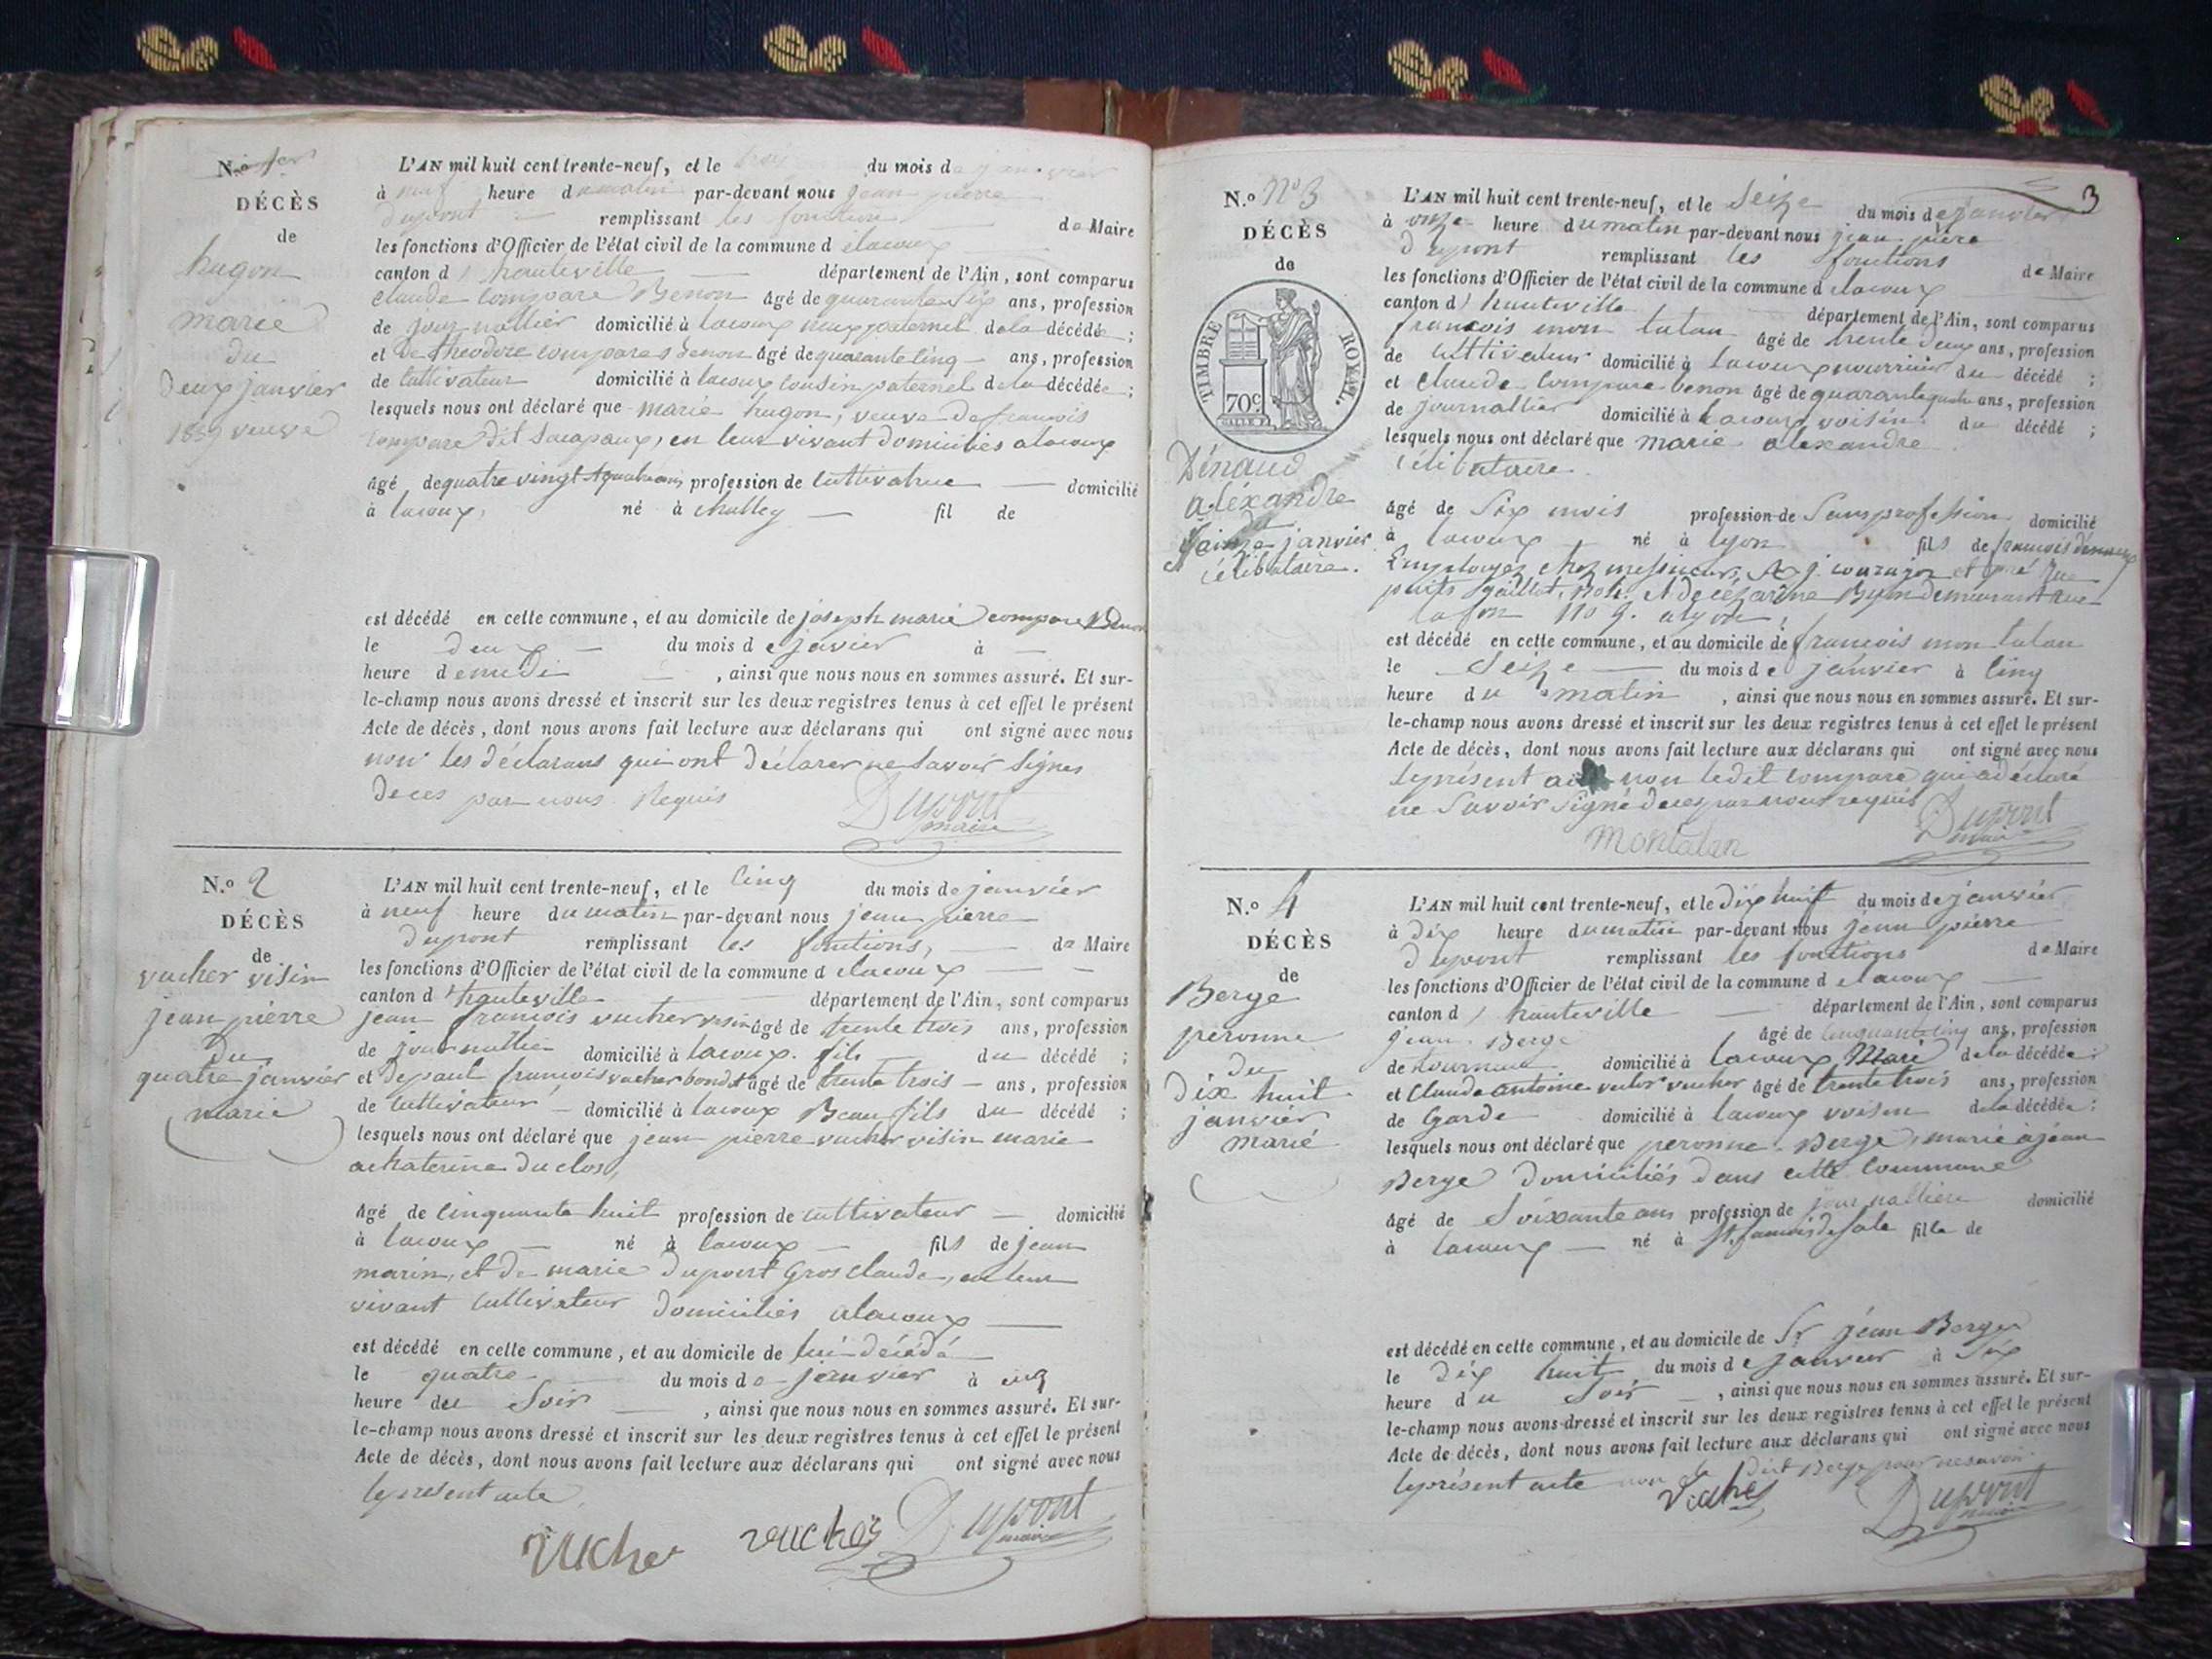 N.º 1er
DÉCÈS
de
hugon
marie
du
Deux janvier
1839 veuve
L'AN mil huit cent trente-neuf, et le trois du mois de janvier
à neuf heure du matin par-devant nous jean pierre
dupont remplissant les fonctions de Maire
les fonctions d'Officier de l'état civil de la commune d elacoux
canton d' hauteville département de l'Ain, sont comparus
claude compare Benon âgé de quarante six ans, profession
de journallier domicilié à lacoux neveux paternel de la décédée ;
et de theodore compare benon âgé de quarante cinq ans, profession
de cultivateur domicilié à lacoux cousin paternel de la décédée ;
lesquels nous ont déclaré que marie hugon, veuve de francois
compare dit , en leur vivant domiciliés a lacoux
âgé de quatre vingt quatre ans profession de cultivatrice domicilié
à lacoux, né à challey fil de
est décédé en cette commune, et au domicile de joseph marie compare Benon
le deux du mois de javier à
heure de midi , ainsi que nous nous en sommes assuré. Et sur-
le-champ nous avons dressé et inscrit sur les deux registres tenus à cet effet le présent
Acte de décès, dont nous avons fait lecture aux déclarans qui ont signé avec nous
non les déclarans qui ont déclarer ne savoir signer
de ces par nous Requis
Dupont
maire
N.º 2
DÉCÈS
de
vucher visin
jean pierre
du
quatre janvier
marie
L'AN mil huit cent trente-neuf, et le cinq du mois de janvier
à neuf heure du matin par-devant nous jean pierre
dupont remplissant les fonctions, de Maire
les fonctions d'Officier de l'état civil de la commune d elacoux
canton d' hauteville département de l'Ain, sont comparus
jean francois vucher visin âgé de trente trois ans, profession
de journallier domicilié à lacoux. fils du décédé ;
et depaul francois vucher bondet âgé de trente trois ans, profession
de cultivateur domicilié à lacoux Beau fils du décédé ;
lesquels nous ont déclaré que jean pierre vucher visin marie
a chaterine duclos,
âgé de cinquante huit profession de cultivateur domicilié
à lacoux né à lacoux fils de jean
marin, et de marie dupont Gros claude, en leur
vivant cultivateur domiciliés a lacoux
est décédé en cette commune, et au domicile de lui décédé
le quatre du mois de janvier à cinq
heure du Soir , ainsi que nous nous en sommes assuré. Et sur-
le-champ nous avons dressé et inscrit sur les deux registres tenus à cet effet le présent
Acte de décès, dont nous avons fait lecture aux déclarans qui ont signé avec nous
le présent acte
Vucher vucher Dupont
maire
3
N.º nº 3
DÉCÈS
de
TIMBRE ROYAL.
70c.
Dénaud
aléxandre
du
Saize janvier
célibataire.
L'AN mil huit cent trente-neuf, et le Seize du mois de janvier
à onze heure du matin par-devant nous jean piere
dupont remplissant les fonctions de Maire
les fonctions d'Officier de l'état civil de la commune d elacoux
canton d' hauteville département de l'Ain, sont comparus
francois mon talan âgé de trente deux ans, profession
de cultivateur domicilié à Lacoux nourricier du décédé ;
et claude compare benon âgé de quarante quatre ans, profession
de journallier domicilié à Lacoux voisin du décédé ;
lesquels nous ont déclaré que marie alexandre
célibataire
âgé de six mois profession de Sans profession domicilié
à lacoux né à lyon fils de francois
Employer chez messieurs, rue
puits gaillot, et de cézarine demeurant rue
lafon nº 9. a lyon,
est décédé en cette commune, et au domicile de francois mon talan
le Seize du mois de janvier à cinq
heure du matin , ainsi que nous nous en sommes assuré. Et sur-
le-champ nous avons dressé et inscrit sur les deux registres tenus à cet effet le présent
Acte de décès, dont nous avons fait lecture aux déclarans qui ont signé avec nous
le présent non ledit compare qui a déclaré
ne Savoir Signé de ces par nous requis
Dupont
maire
Montalan
N.º 4
DÉCÈS
de
Berge
peronne
du
dix huit
janvier
marié
L'AN mil huit cent trente-neuf, et le dix huit du mois de janvier
à dix heure du matin par-devant nous jean pierre
dupont remplissant les fonctions de Maire
les fonctions d'Officier de l'état civil de la commune d elacoux
canton d' hauteville département de l'Ain, sont comparus
jean Berge âgé de cinquante cinq ans, profession
de tourneur domicilié à lacoux Mari de la décédée ;
et claude antoine vucher âgé de trente trois ans, profession
de Garde domicilié à lacoux voisin de la décédée ;
lesquels nous ont déclaré que peronne Berge, marié à jean
Berge domiciliés dans cette commune
âgé de Soixante ans profession de journalliere domicilié
à lacoux né à St. francois de Sale fille de
est décédé en cette commune, et au domicile de Sr jean Berge
le dix huit du mois de janvier à Six
heure du Soir , ainsi que nous nous en sommes assuré. Et sur-
le-champ nous avons dressé et inscrit sur les deux registres tenus à cet effet le présent
Acte de décès, dont nous avons fait lecture aux déclarans qui ont signé avec nous
le présent acte non le dit Berge pour ne savoir
Vucher Dupont
maire